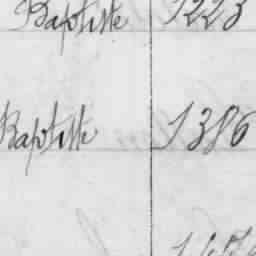 Baptiste 1223
Baptiste 1386